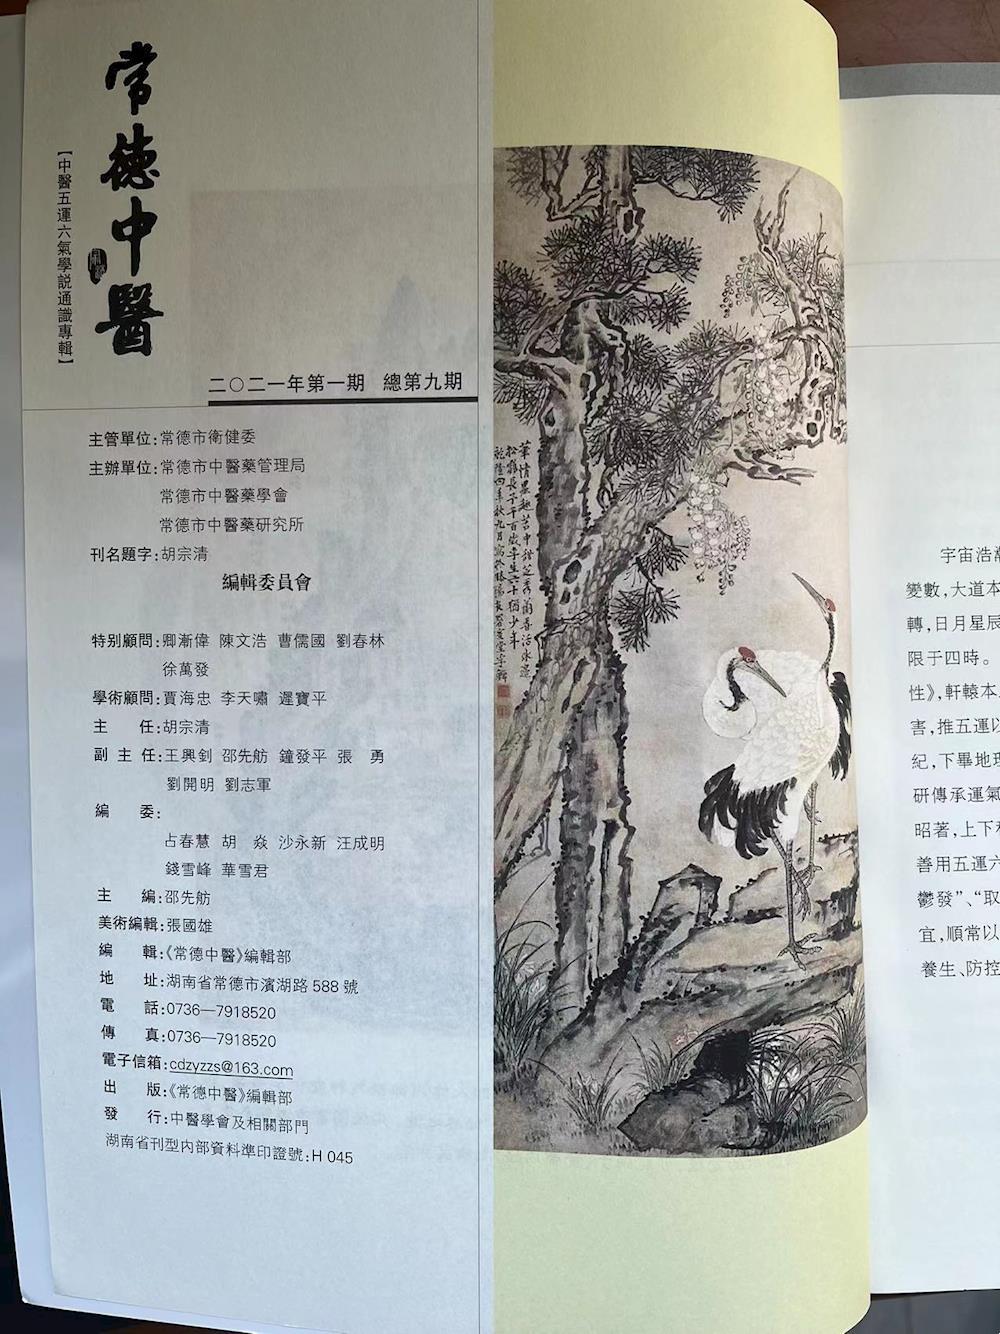 常德中醫
【中醫五運六氣學説通識專輯】
二〇二一年第一期 總第九期
主管單位:常德市衛健委
主辦單位:常德市中醫藥管理局
常德市中醫藥學會
常德市中醫藥研究所
刊名題字:胡宗清
編輯委員會
特别顧問:卿漸偉 陳文浩 曹儒國 劉春林
徐萬發
學術顧問:賈海忠 李天嘯 遲寶平
主 任:胡宗清
副 主 任:王興釗 邵先舫 鐘發平 張 勇
劉開明 劉志軍
編 委:
占春慧 胡 焱 沙永新 汪成明
錢雪峰 華雪君
主 編:邵先舫
美術編輯:張國雄
編 輯:《常德中醫》編輯部
地 址:湖南省常德市濱湖路588號
電 話:0736—7918520
傳 真:0736—7918520
電子信箱:cdzyzzs@163.com
出 版:《常德中醫》編輯部
發 行:中醫學會及相關部門
湖南省刊型内部資料準印證號:H 045
松鶴長子千百歲
乾隆四年秋九月
宇宙浩
變數,大道本
轉,日月星辰
限于四時。
性》,軒轅本
害,推五運以
紀,下畢地理
研傳承運氣
昭著,上下
善用五運六
鬱發”、“取
宜,順常以
養生、防控